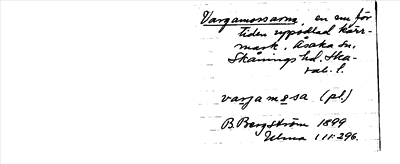 Vargamossarna, en nu för
tiden uppodlad kärr-
mark. Åsaka sn.
Skånings hd. Ska-
rab. l.
vargamosa (pl.)
B. Bergström 1899
Ulma 111:296.